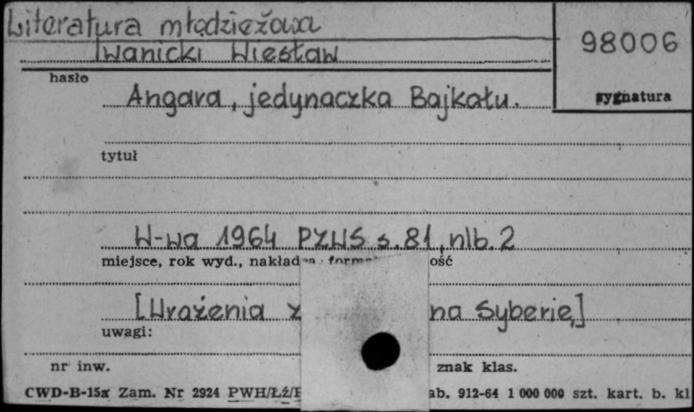 Literatura młodzieżowa
98006
Iwanicki Wiesław
hasło
sygnatura
Angara, jedynaczka Bajkału.
tytuł
W-wa 1964 PZWS s. 81, nlb. 2
miejsce, rok wyd., nakładca, format
[Wrażenia z na Syberię]
uwagi:
nr inw. znak klas.
CWD-B-15a Zam. Nr 2924 PWH/Łź/ 912-64 1 000 000 szt. kart. b. kl